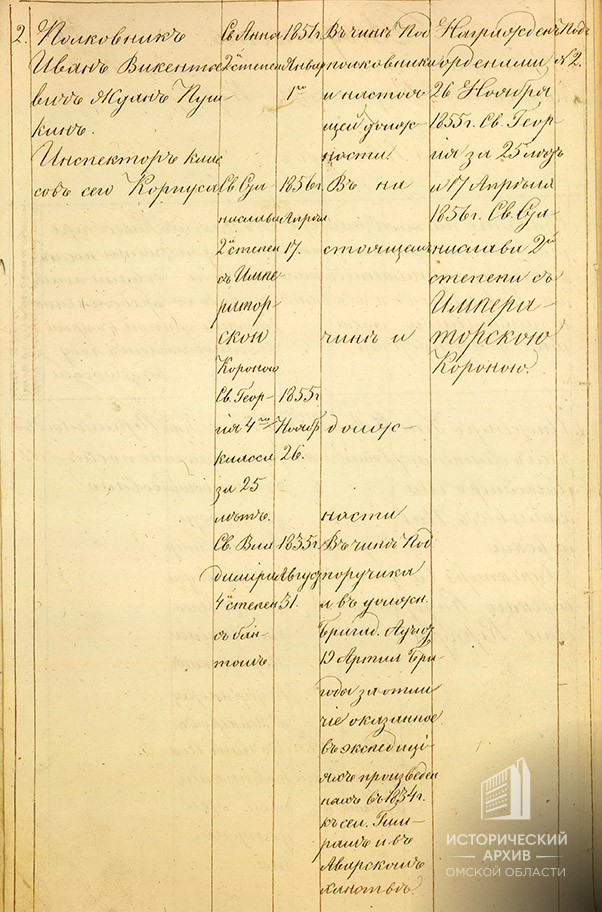 2. Полковникъ
Иванъ Викентье
вичъ Жданъ Пуш-
кинъ.
Инспекторъ клас
совъ сего Корпуса
Св. Анны
2й степен
Св. Ста
нислава
2й степен
съ Импе-
ратор-
скою
Короною
Св. Геор-
гія 4го
класса
за 25
лѣтъ.
Св. Вла
диміра
4й степен
съ бан-
томъ.
1851г.
Январ
1го
1856г.
Апрѣл
17.
1855г
Ноябр
26.
1835г.
Август
31.
Въ чинѣ Под
полковника
и настоя
щей долж
ности.
Въ на
стоящемъ
чинѣ и
долж-
ности
Въ чинѣ Под
поручика
и въ должн.
Бригад. Адъют
19 Артил Бри-
гады за отли
чіе оказанное
въ экспедиці
яхъ произведен
ныхъ въ 1834г.
къ сел. Гим-
рамъ и въ
Аварскомъ
ханствѣ.
Награжденъ
орденами
26 Ноября
1855г. Св. Геор
гія за 25 лѣтъ
и 17 Апрѣля
1856г. Св. Ста
нислава 2й
степени съ
Импера-
торскою
Короною.
Под
№ 2.
ИСТОРИЧЕСКИЙ
АРХИВ
ОМСКОЙ ОБЛАСТИ